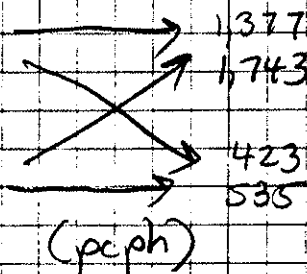 1,377
1,743
423
535
(pcph)